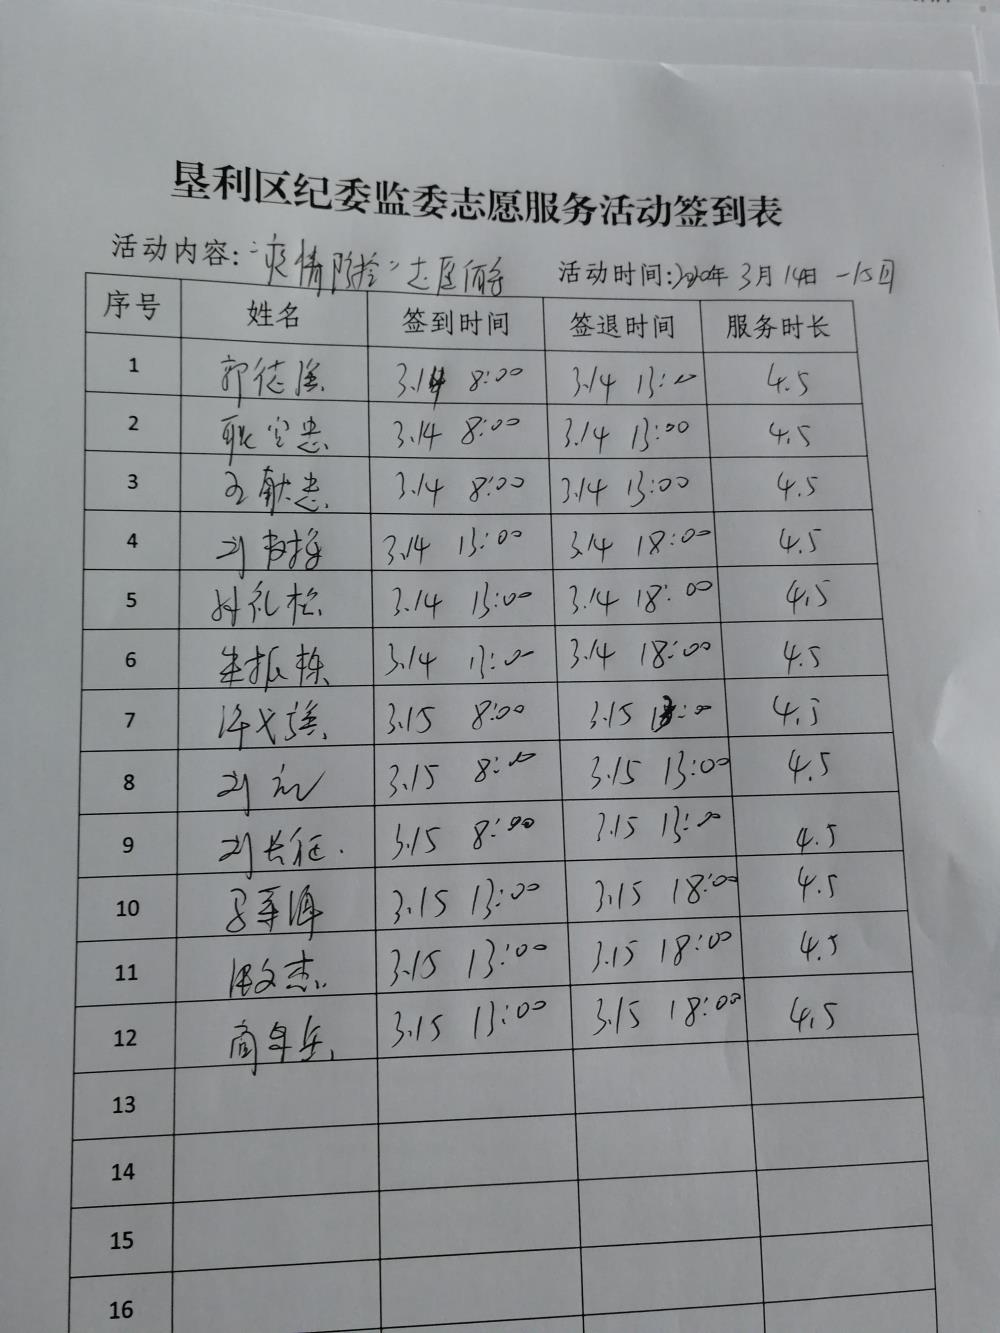 垦利区纪委监委志愿服务活动签到表
活动内容:"疫情防控"志愿服务 活动时间:2020年3月14日-15日
序号 姓名 签到时间 签退时间 服务时长
1 3.14 8:00 3.14 13:00 4.5
2 3.14 8:00 3.14 13:00 4.5
3 王献忠 3.14 8:00 3.14 13:00 4.5
4 3.14 13:00 3.14 18:00 4.5
5 3.14 13:00 3.14 18:00 4.5
6 3.14 13:00 3.14 18:00 4.5
7 3.15 8:00 3.15 13:00 4.5
8 3.15 8:00 3.15 13:00 4.5
9 刘长征 3.15 8:00 3.15 13:00 4.5
10 3.15 13:00 3.15 18:00 4.5
11 3.15 13:00 3.15 18:00 4.5
12 3.15 13:00 3.15 18:00 4.5
13
14
15
16